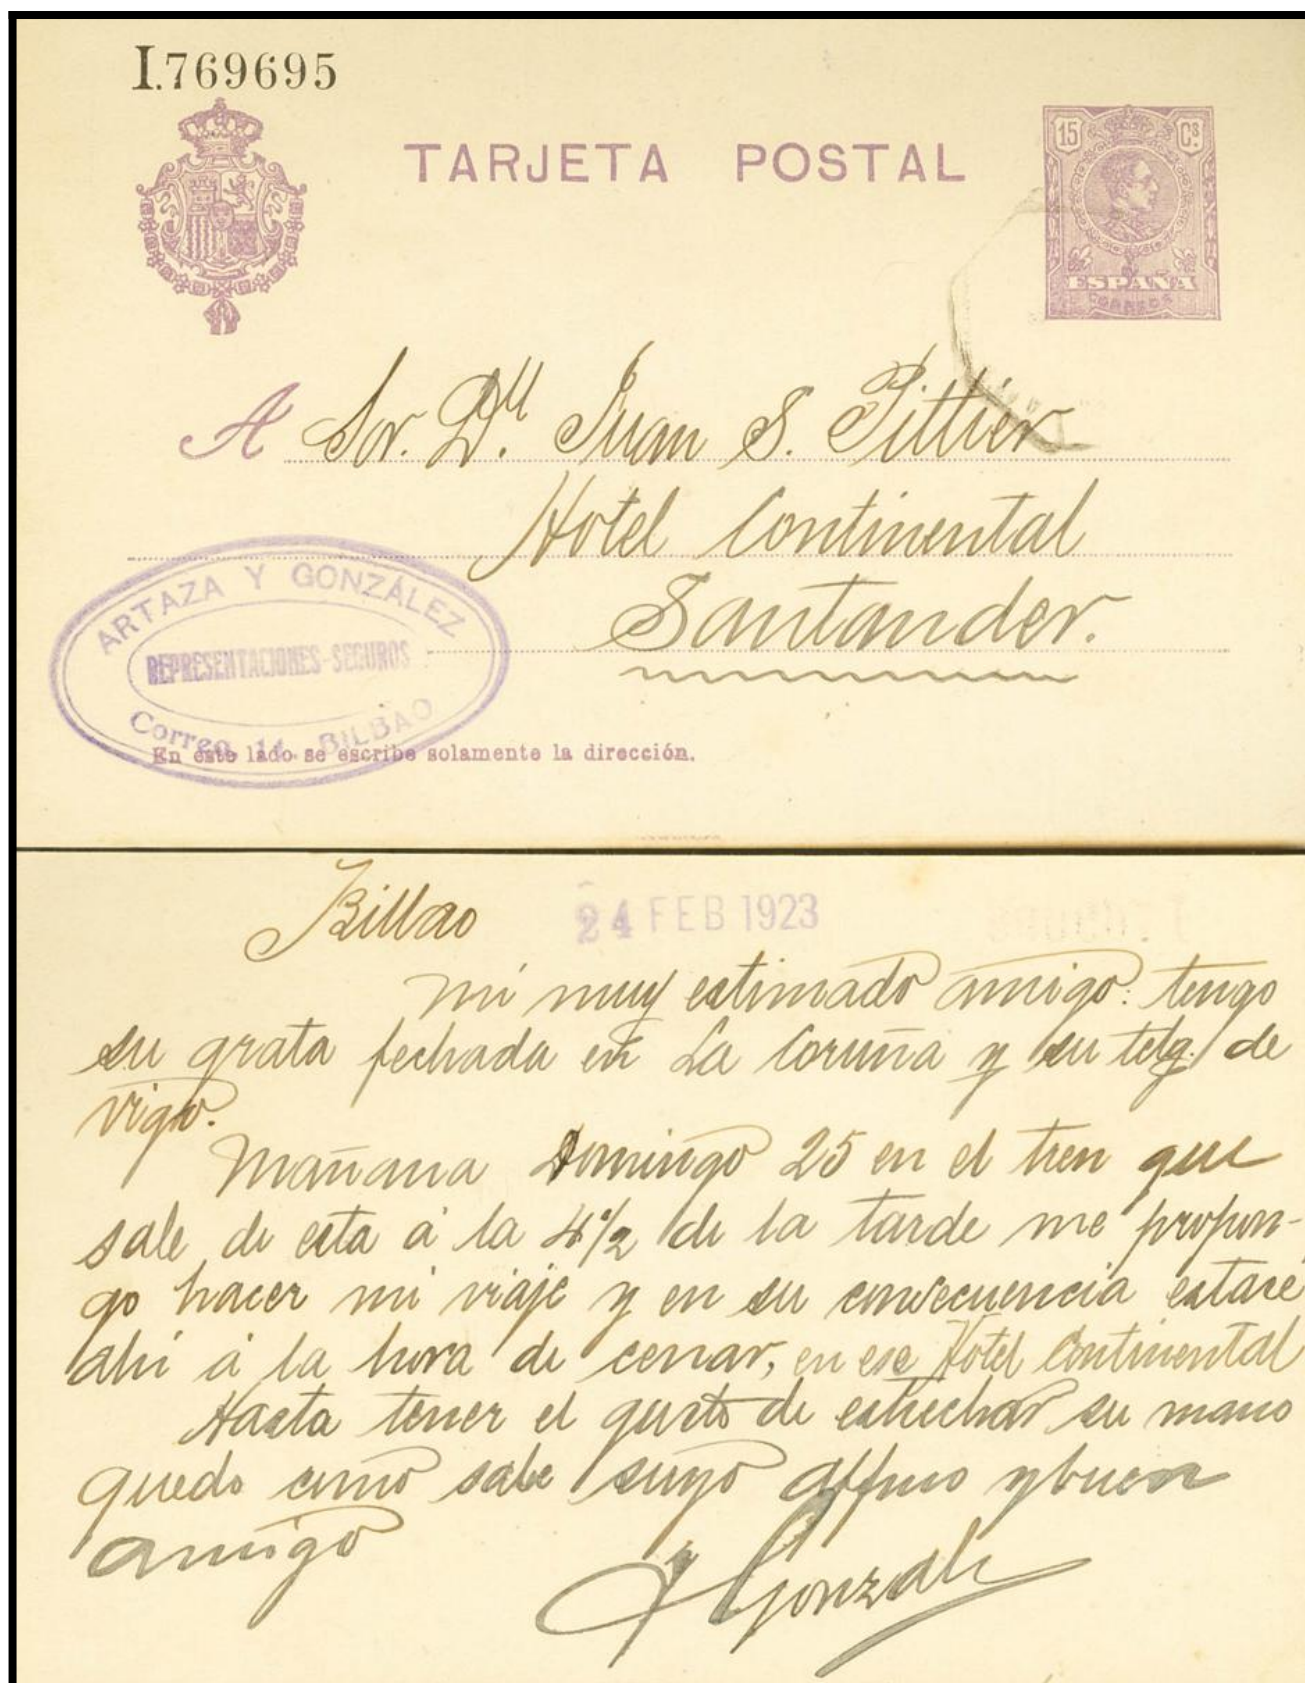 I.769695
TARJETA POSTAL
15 Cs.
ESPAÑA
CORREOS
A Sor. Dn. Juan S. Pittier
Hotel Continental
Santander.
ARTAZA Y GONZÁLEZ
REPRESENTACIONES-SEGUROS
Correo, 11. BILBAO
En este lado se escribe solamente la dirección.
Bilbao 24 FEB 1923
mi muy estimado amigo: tengo
su grata fechada en La Coruña y su telg. de
vigo.
Mañana Domingo 25 en el tren que
sale de esta á la 4 1/2 de la tarde me propon-
go hacer mi viaje y en su consecuencia estaré
ahi á la hora de cenar, en ese Hotel Continental
Hasta tener el gusto de estrechar su mano
quedo como sabe suyo affmo y buen
amigo
Gonzalez